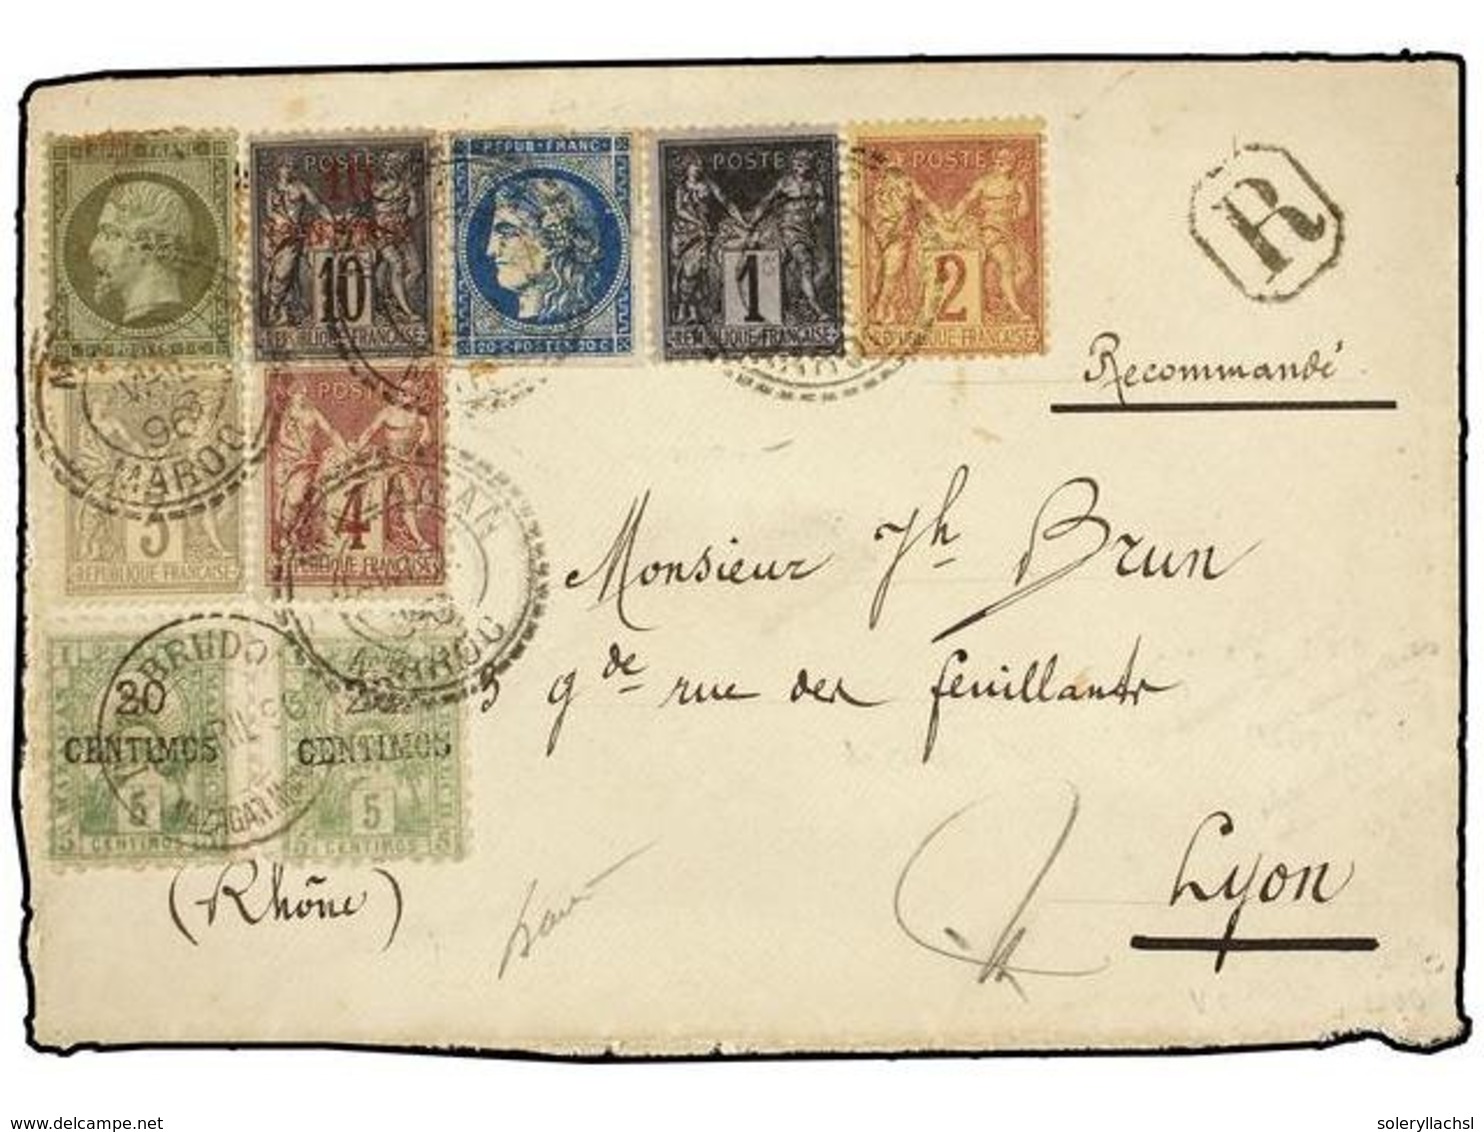 POSTE
10
RÉPUBLIQUE FRANÇAISE
REPUB·FRANC
20·C·POSTES·20 C
POSTE
1c
RÉPUBLIQUE FRANÇAISE
POSTE
2
RÉPUBLIQUE FRANÇAISE
R
Recommandé
96
MAROC
5
RÉPUBLIQUE FRANÇAISE
POSTE
4
RÉPUBLIQUE FRANÇAISE
MAROC
Monsieur Jh Brun
3 gde rue des feuillants
Lyon
(Rhône)
20
CENTIMOS
5
CENTIMOS
CENTIMOS
5
CENTIMOS
www.delcampe.net
soleryllachsl